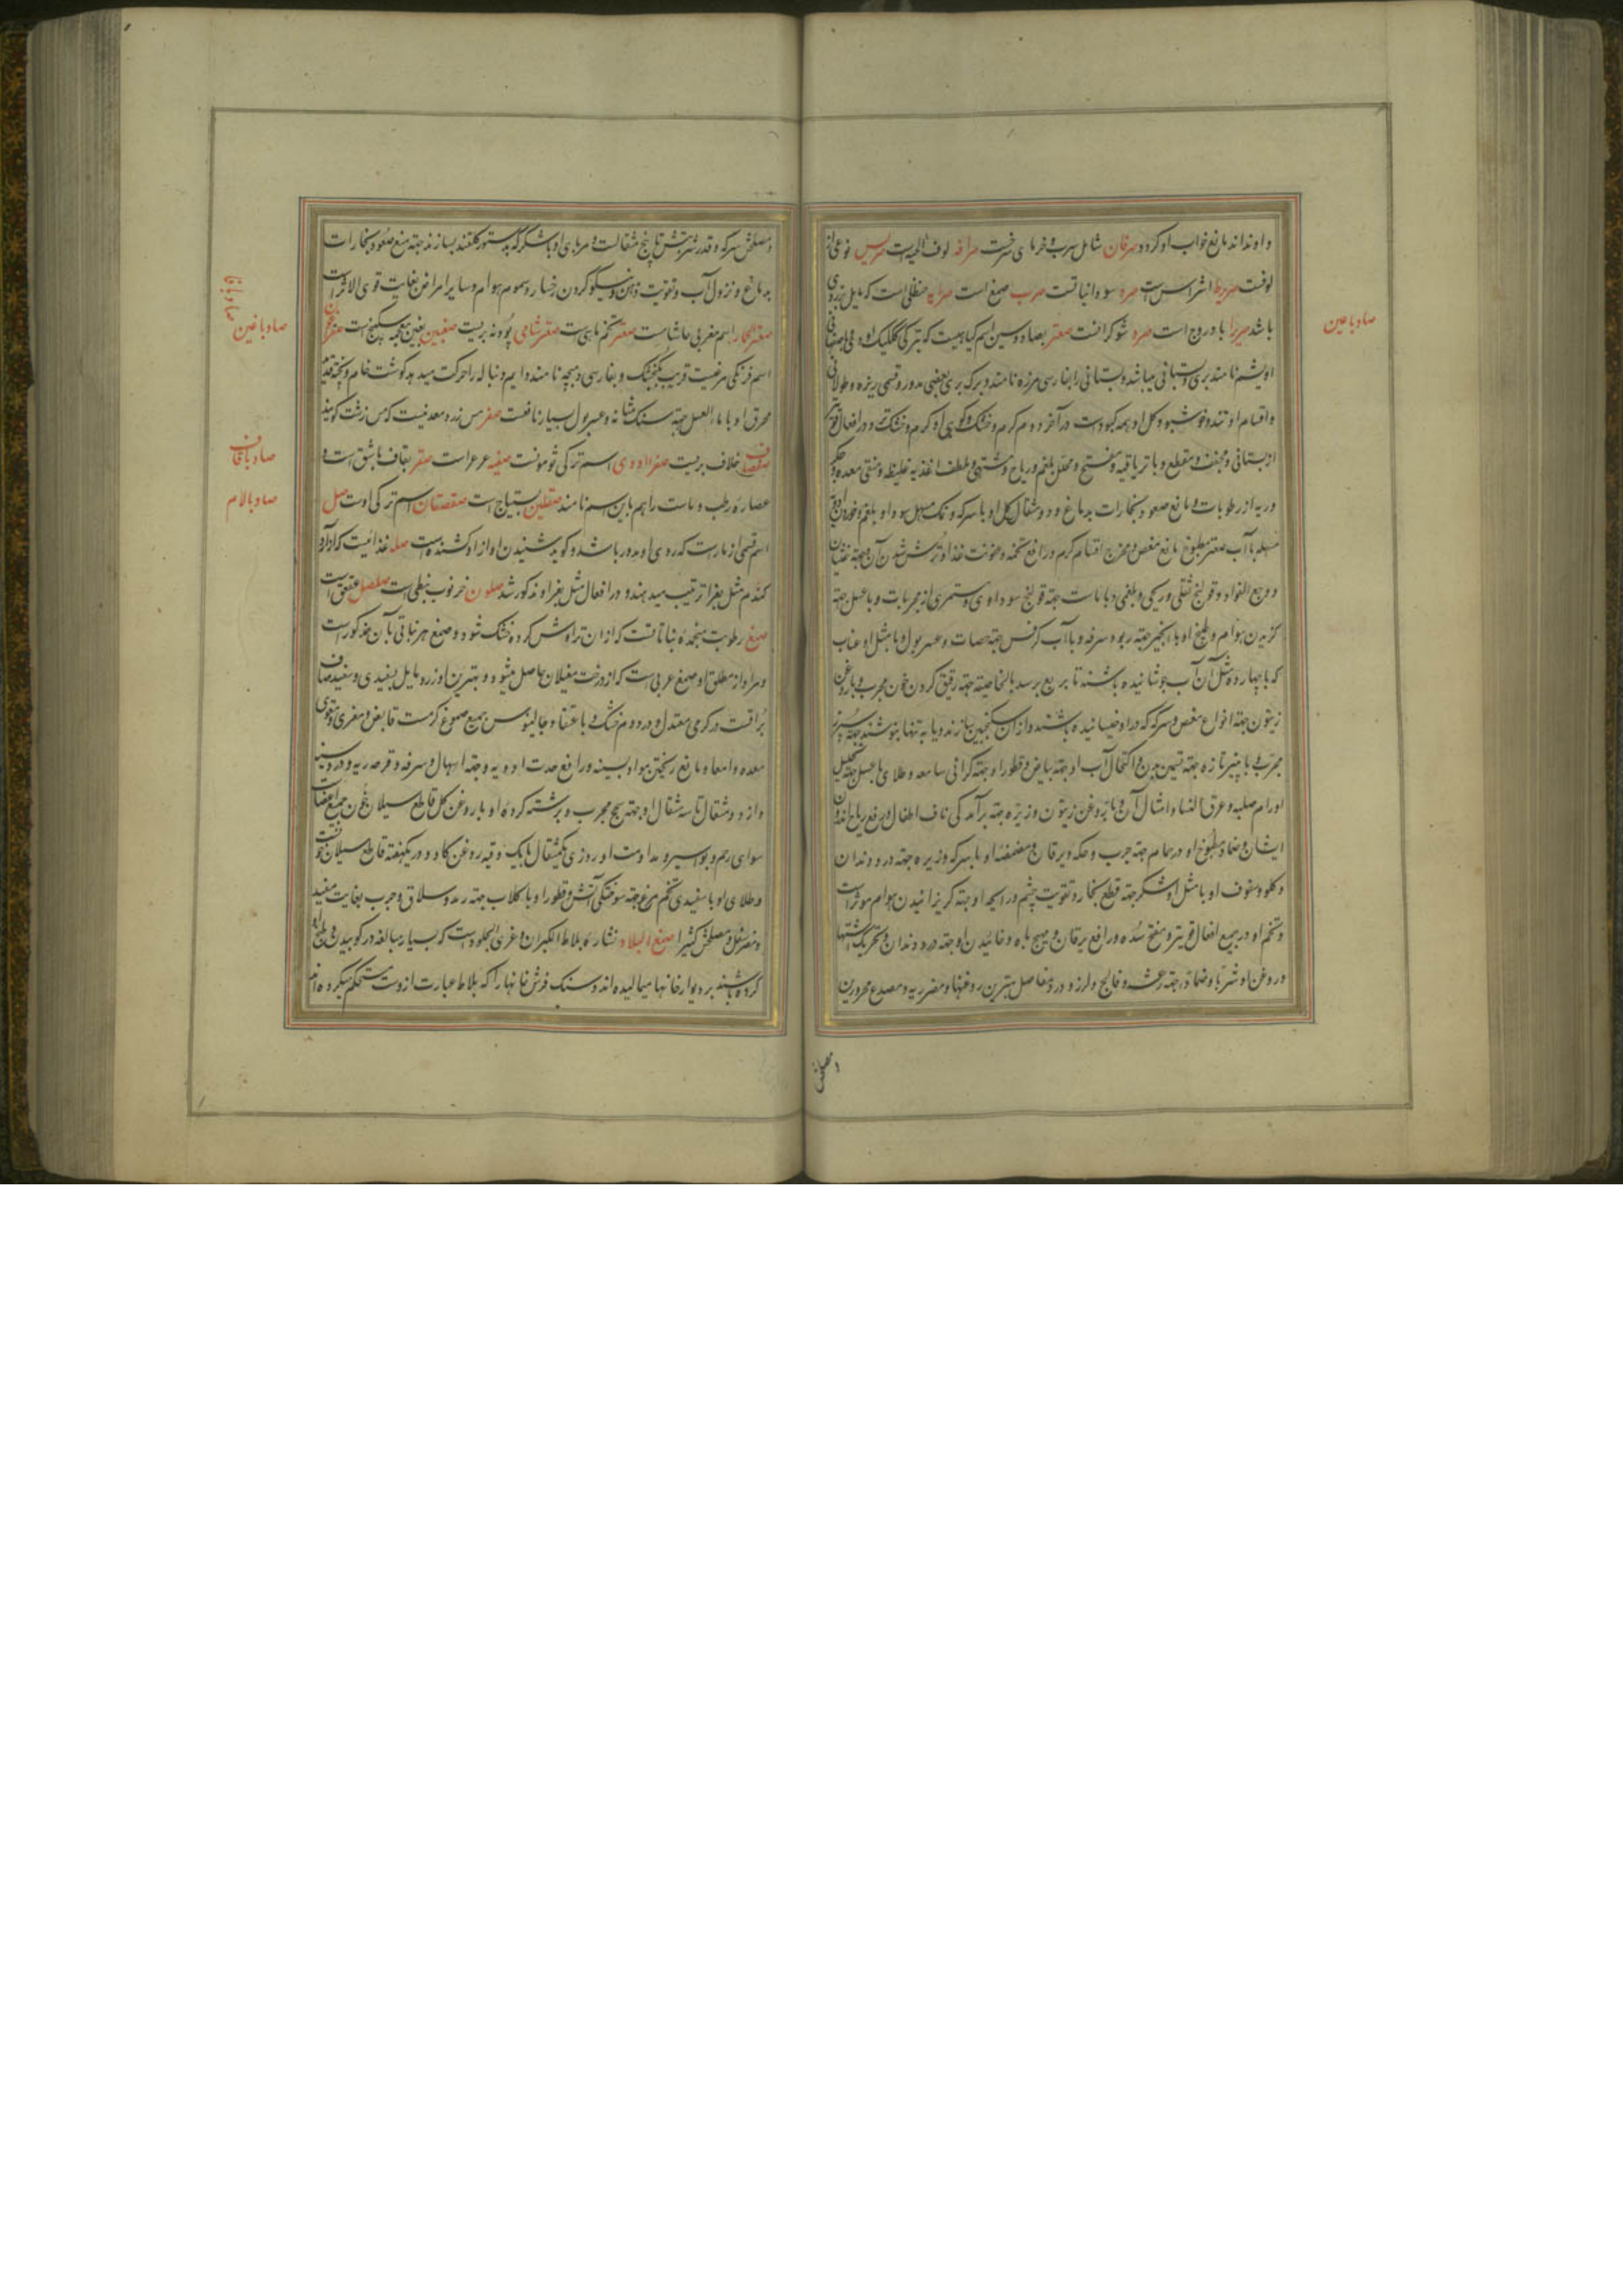 و او نداند مانع خواب او کردد صرفان شامل سرب و خرمای سرخست صرافه لوف الحیه است صریس نوعی از
لوفست صریط اشراس است صره سودانیاتست صرب صمغ است صرایه حنظلی است که مایل بزردی
باشد صریرا بادروج است صره شوکرانست صعتر بصاد و سین اسم کیاهیست که بترکی ککلیک اوتی و باصفهانی
اویشم نامند بری و بستانی میباشد و بستانی را بفارسی مرزه نامند و برک بری بعضی مدور و قسمی ریزه و طولانی
و اقسام او تند و خوشبو و کل او همه کبود است در آخر دوم کرم و خشک و کوهی او کرم و خشک تر و در افعال قویتر
از بستانی و مجفف و مقطع و با تریاقیه و مفتح و محلل بلغم و ریاح و مشتهی و ملطف اغذیه غلیظه و منقی معده و جکر
و ریه از رطوبات و مانع صعود بخارات بدماغ و دو مثقال کل او با سرکه و نمک مسهل سودا و بلغم و خوردن ادویه
مسهله با آب صعتر مطبوخ مانع مغص و مخرج اقسام کرم و رافع تخمه و عفونت غذا و ترش شدن آن و جهة غثیان
و وجع الفواد و قولنج ثفلی و ریحی و بلغمی و با ماست جهة قولنج سوداوی و ستمری از مجربات و با عسل جهة
کزیدن هوام و طبخ او با انجیر جهة ربو و سرفه و با آب کرفس جهة حصات و عسر بول و با مثل او عناب
که با چهارده مثل آن آب جوشانیده باشند تا بربع برسد بالخاصیة جهة رقیق کردن خون مجرب و با روغن
زیتون جهة انواع مغص و سرکه که در او خیسانیده باشند و از ان سکنجبین سازند و یا به تنها بنوشند جهة سپرز
مجرب و با پنیر تازه جهة تسمین بدن و اکتحال آب او جهة بیاض و قطور او جهة کرانی سامعه و طلای با عسل جهة تحلیل
اورام صلبه و عرق النساء و امثال آن و با روغن زیتون و زیره جهة برآمدکی ناف اطفال و رفع ریاح اندرون
ایشان و ضماد مطبوخ او در حمام جهة جرب و حکه و یرقان و مضمضهٔ او با سرکه و زیره جهة درد دندان
و کلو و سفوف او با مثل او شکر جهة قطع بخار و تقویت چشم و رایحه او جهة کریزانیدن هوام موثر است
و تخم او در جمیع افعال قویتر و مفتح سده و رافع یرقان و مهیج باه و خائیدن او جهة درد دندان و تحریک اشتها
و روغن او شربا و ضمادا جهة رعشه و فالج و لرز و درد مفاصل بهترین روغنها و مضر ریه و مصدع محرورین
و مصلحش
صاد با عین
و مصلحش سرکه و قدر شربتش تا پنج مثقالست و مربای او با شکر که بدستور کلقند بسازند جهة منع صعود بخارات
بدماغ و نزول آب و تقویت ذهن و نیکو کردن رخسار و سموم هوام و سایر امراض بغایت قوی الاثر است
صعتر الحمار اسم مغربی حاشاست صعتر تخم ماهی است صعتر شامی پودنه بریست صغبین بغین معجمه سکبینج است صفراغون
اسم فرنکی مرغیست قریب بکنجشک و بفارسی دمبچه نامند و دایم دنباله را حرکت میدهد کوشت خام و پخته قدید
محرق او با ماء العسل جهة سنک مثانه و عسر بول بسیار نافعست صفر مس زرد معدنیست که مس رست کویند
صفصاف خلاف بریست صفرا اودی اسم ترکی ثومونست صفیه عرعر است صقر بقاف باشق است و
عصارهٔ رطب و ماست را هم باین اسم نامند صقلین بستیاج است صقصقان اسم ترکی اوست صل
اسم قسمی از مارست که روی او مدور باشد و کویند شنیدن آواز او کشنده است صله غذائیست که از آرد
کندم مثل بغرا ترتیب میدهند و در افعال مثل بغرا و مذکور شد صلون خرنوب نبطی است صلصل عقعق است
صمغ رطوبت منجمدهٔ نباتاتست که از ان تراوش کرده خشک شود و صمغ هر نباتی با آن مذکور است
و مراد از مطلق او صمغ عربی است که از درخت مغیلان حاصل میشود و بهترین او زرد مایل بسفیدی و سفید صاف
براقست در کرمی معتدل و در دوم خشک و باعتقاد جالینوس جمیع صموغ کرمست قابض و مغری و مقوی
معده و امعا و مانع ریختن مواد بسینه و رافع حدت ادویه و جهة اسهال و سرفه و قرحه ریه و درد سینه
و از دو مثقال تا سه مثقال او جهة سحج مجرب و برشته کردهٔ او با روغن کل قاطع سیلان خون جمیع اعضاست
سوای رحم و بواسیر و مداومت او روزی یکمثقال با یک وقیه روغن کاو و در یکهفته قاطع سیلان خونست
و طلای او با سفیدی تخم مرغ جهة سوختکی آتش و قطور او با کلاب جهة رمد و سلاق و جرب بغایت مفید
و مضر سفل و مصلحش کثیرا صمغ البلاط نشارهٔ بلاط الکبران و غری الجلود است که بسیار مبالغه در کوبیدن و طبخ او
کرده باشند بر دیوار خانها میمالیده اند و سنک فرش خانها را که بلاط عبارت ازوست مستحکم میکرده اند
صاد با غین
صاد با فا
صاد با قاف
صاد با لام